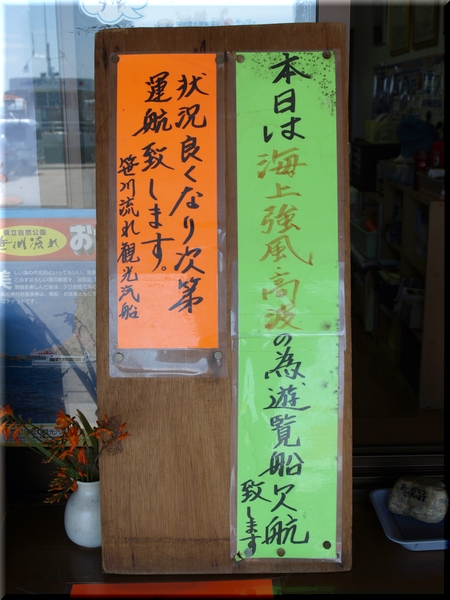 本日は海上強風高波の為遊覧船欠航
致します
状況良くなり次第
運航致します。
笹川流れ観光汽船
県立自然公園
笹川流れ
お